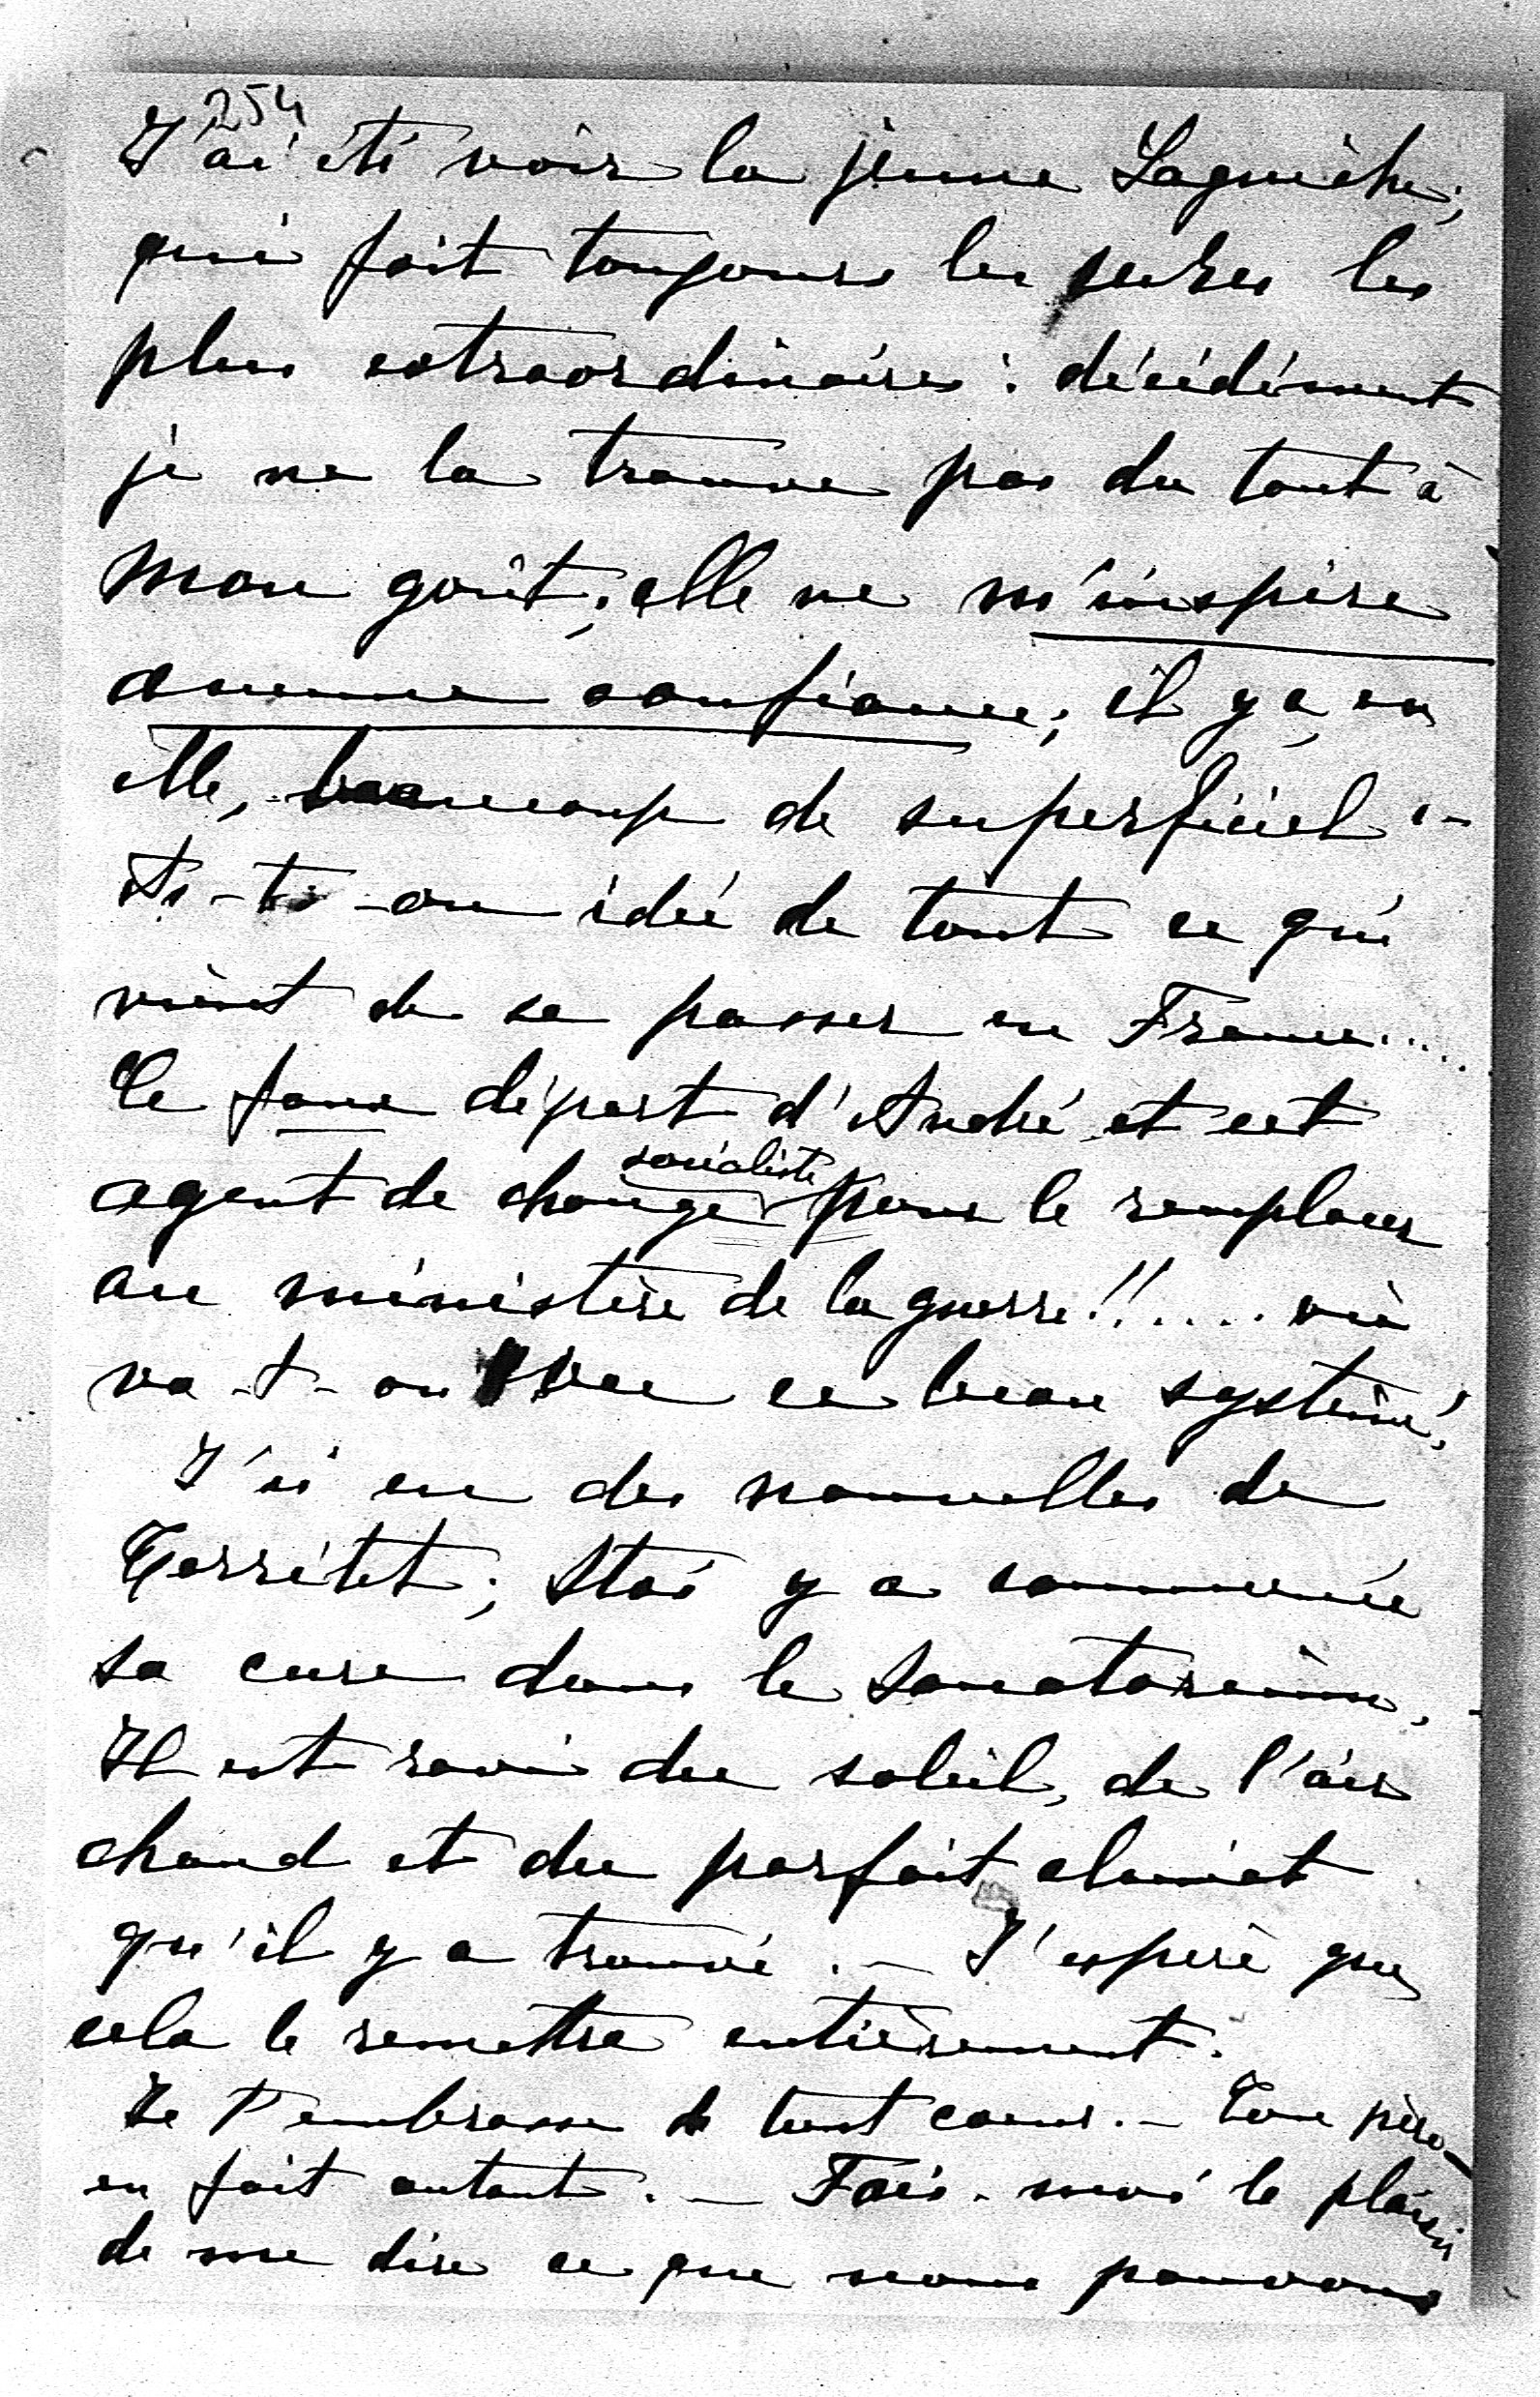 254
J'ai été voir la jeune Laguiche,
qui fait toujours les rêves les
plus extraordinaires : décidément
je ne la trouve pas du tout à
mon goût ; elle ne m'inspire
aucune confiance ; il y a, en
elle, beaucoup de superficiel . -
A-t-on idée de tout ce qui
vient de se passer en France.....
Ce faux départ d'André et cet
socialiste
agent de change pour le remplacer
au ministère de la guerre !!.....
va-t-on avec ce beau système !
J'ai eu des nouvelles de
Territet ; Stas y a commencé
sa cure dans le Sanatorium.
Il est ravi du soleil, de l'air
chaud et du parfait climat
qu'il y a trouvé . - J'espère que
cela le remettra entièrement.
Je t'embrasse de tout coeur. - Ton père
en fait autant. - Fais-moi le plaisir
de me dire ce que nous pouvons